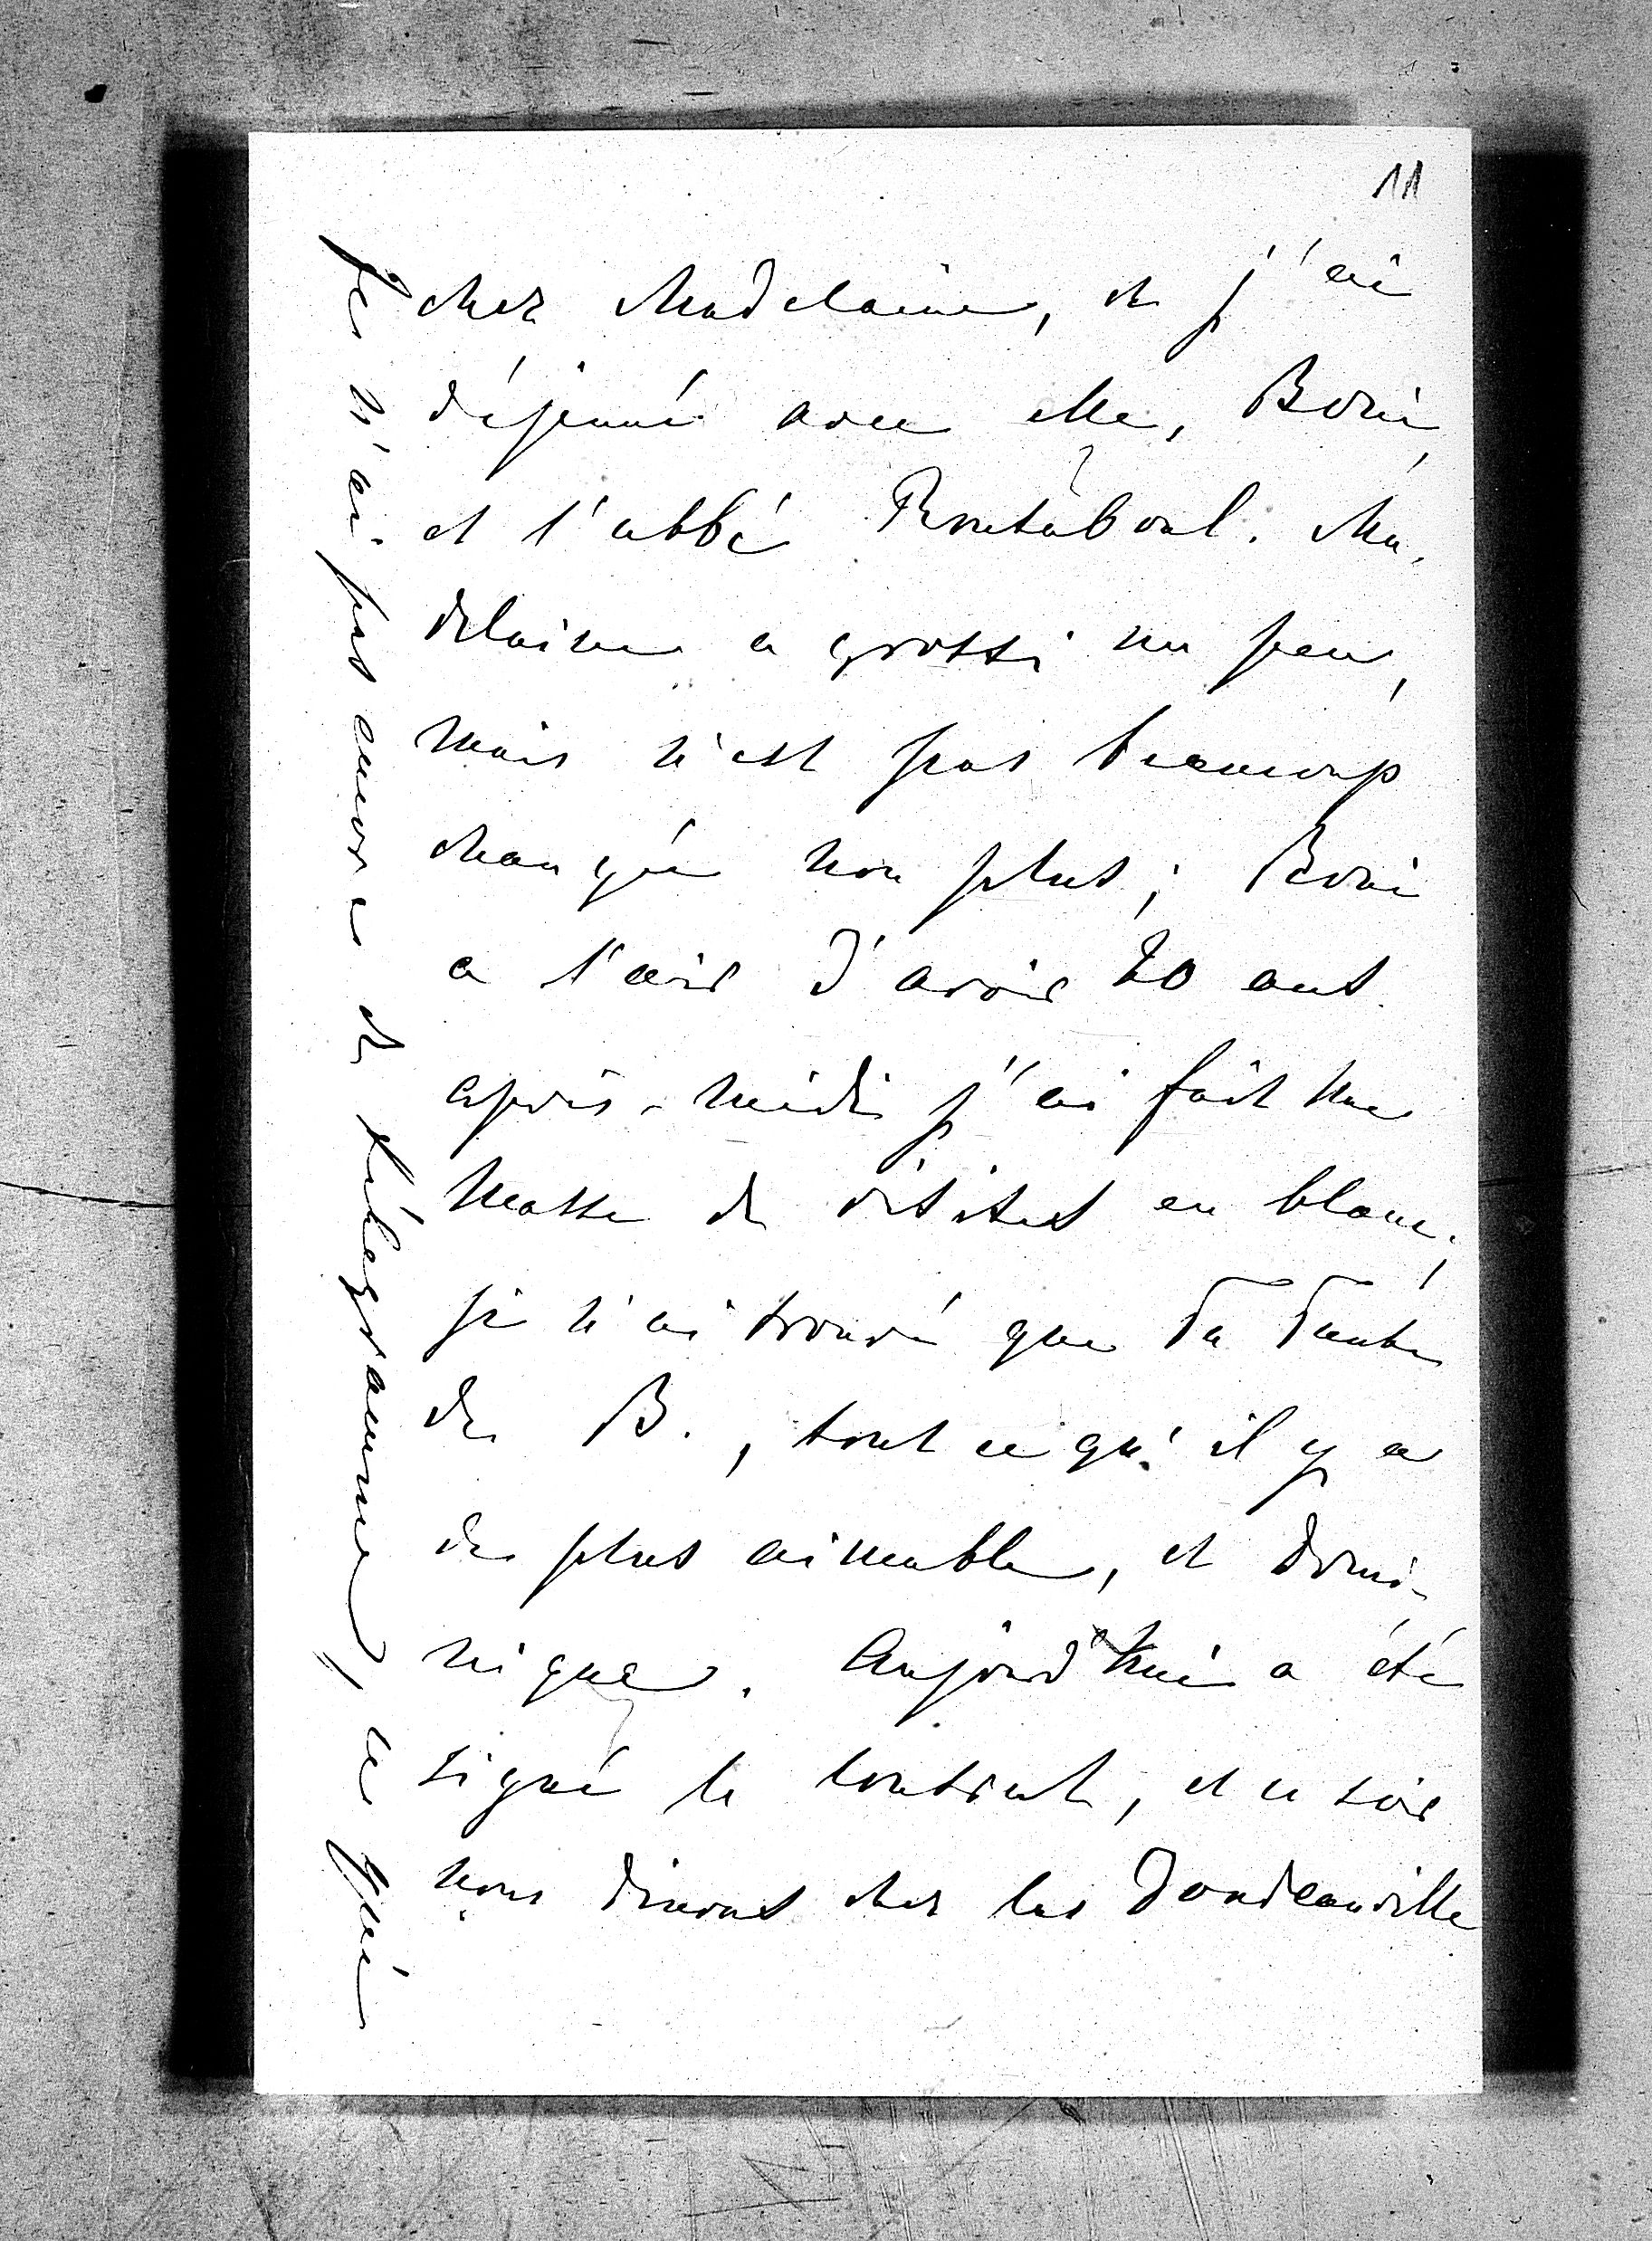 11
chez Madelaine, et j'ai
déjeuné avec elle, Boni
et l'abbé Routaboul. Ma-
delaine a grossi un peu,
mais n'est pas beaucoup
changée non plus; Boni
a l'air d'avoir 20 ans.
après-midi j'ai fait une
masse de visites en blanc;
je n'ai trouvé que la Tante
de B., tout ce qu'il y a
de plus aimable, et Domi-
nique. Aujourd'hui a été
signé le contrat, et ce soir
nous dinons chez les Doudeauville
Je n'ai pas encore de télégramme, les qui